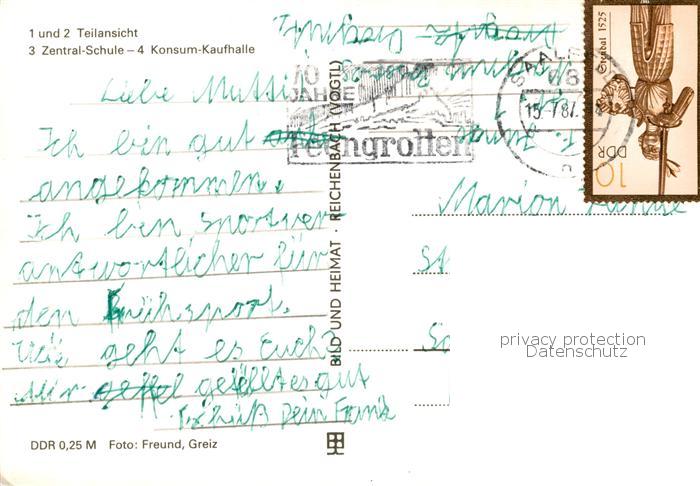 1 und 2 Teilansicht
3 Zentral-Schule – 4 Konsum-Kaufhalle
Liebe Mutti
Ich bin gut
angekommen.
Ich bin sportver-
antwortlicher für
den Frühsport.
Wie geht es Euch?
Mir gefällt es gut
Tschüß Dein Frank
DDR 0,25 M Foto: Freund, Greiz
BILD UND HEIMAT · REICHENBACH (VOGTL)
70
JAHRE
Feengrotten
SAALFELD
68
15.-7.87
DDR
10
1525
Marion
St
privacy protection
Datenschutz